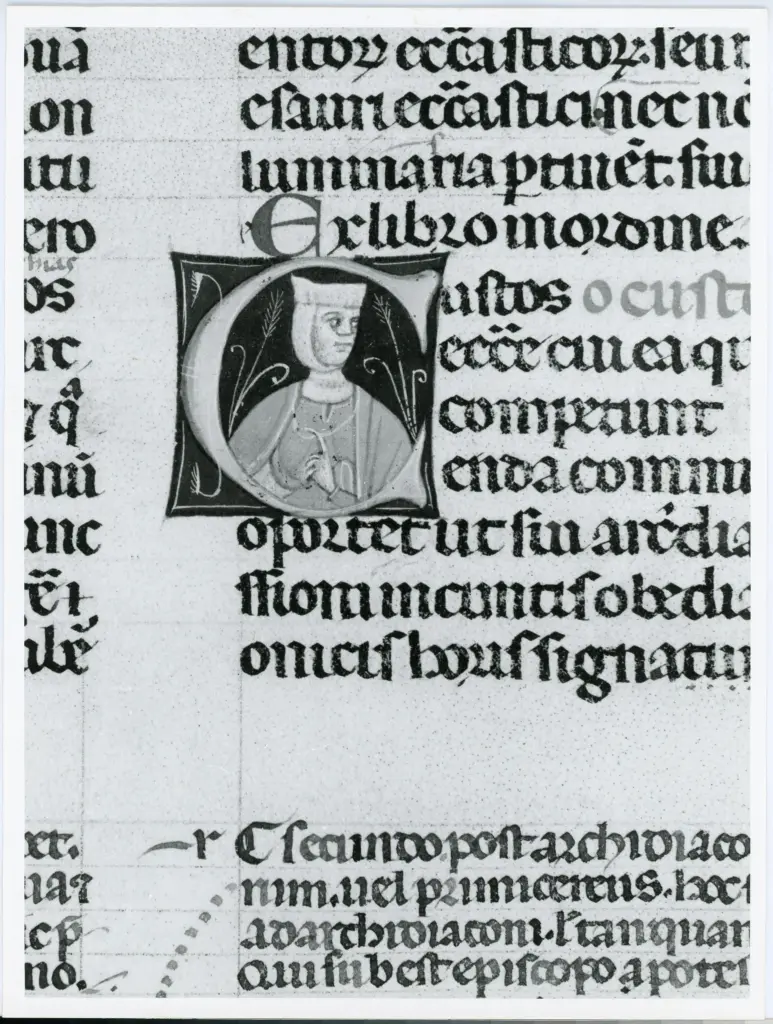 uā
on
itu
ero
os
ur
qͣ
anū
unc
ēt
albē
et.
no.
entoꝝ ecc̄asticoꝝ. seu
esauri ecc̄astici. nec nō
luminaria ꝑtinēt. siu
Ex libro in ordine.
Custos o custo
ecc̄e cui ea qu
competunt
enda commu
oportet ut sin arc̄dia
ssioni in cunctis obedi
onicis horis signatur
r C secundo post archidiaco
num. uel primicereus. hoc
ad archidiaconi. l' tanquam
Qui sub est episcopo a potes